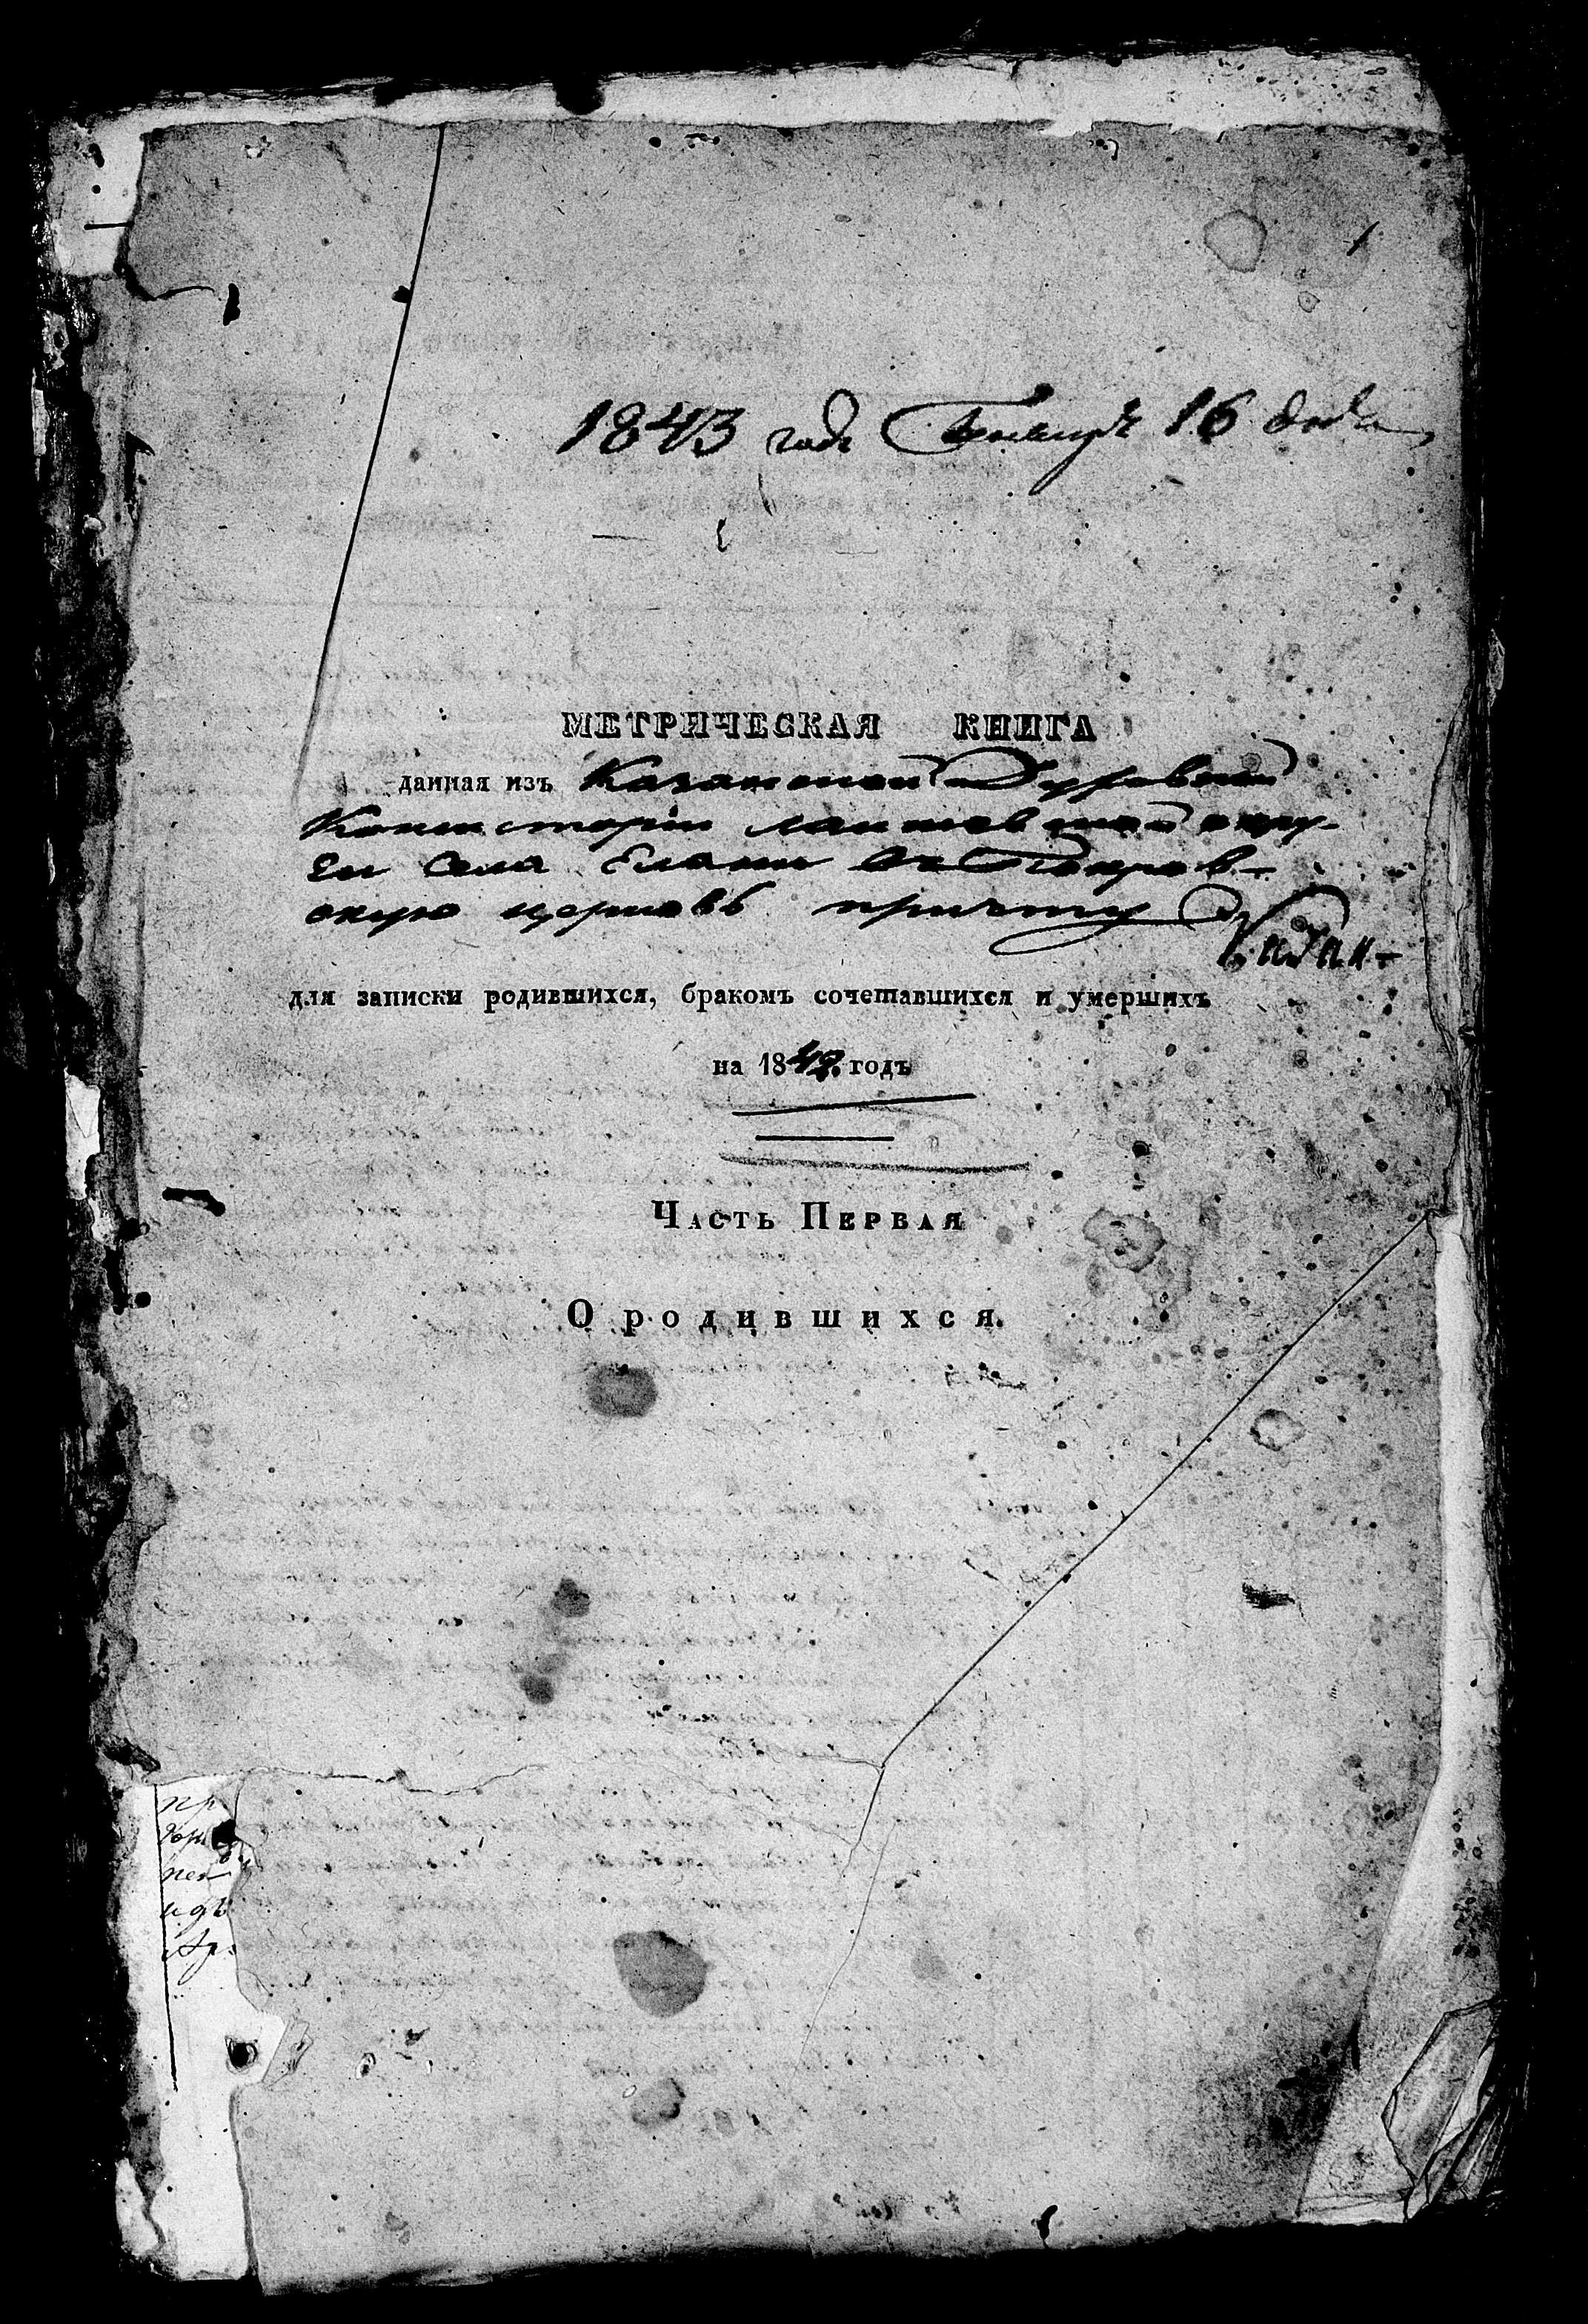 1843 года Генваря 16 дня
МЕТРИЧЕСКАЯ КНИГА
данная изъ Казанской Духовной
Консисторіи Лаишевской окру-
ги Села Елани въ Покров-
скую церковь причту
для записки родившихся, бракомъ сочетавшихся и умершихъ
на 1842 годъ
Часть Первая
О родившихся.
пр